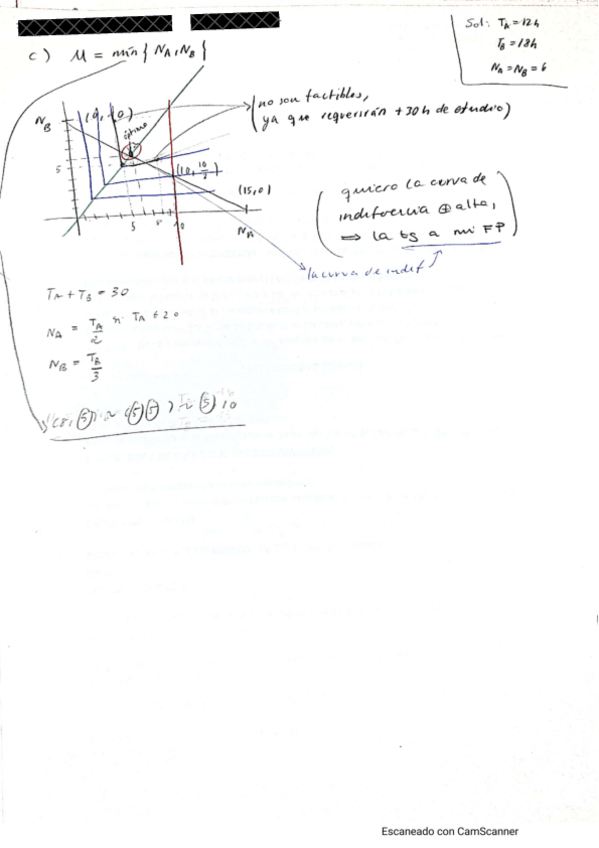 Sol: TA = 12h
TB = 18h
NA = NB = 6
c) U = mín { NA, NB }
NB
(0, 10)
óptimo
no son factibles,
(ya que requerirían +30h de estudio)
5
(10, 10/3)
(15,0)
5
10
NA
(quiero la curva de
indiferencia ⊕ alta,
⇒ la tg a mi FP)
la curva de indif
TA + TB = 30
NA = TA/2 si TA ≤ 20
NB = TB/3
(8,5) ~ (5,5) ~ 5,10
Escaneado con CamScanner